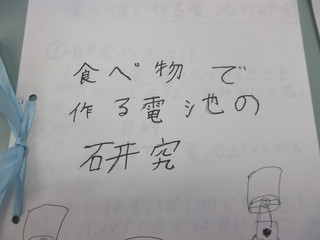 食べ物で
作る電池の
研究